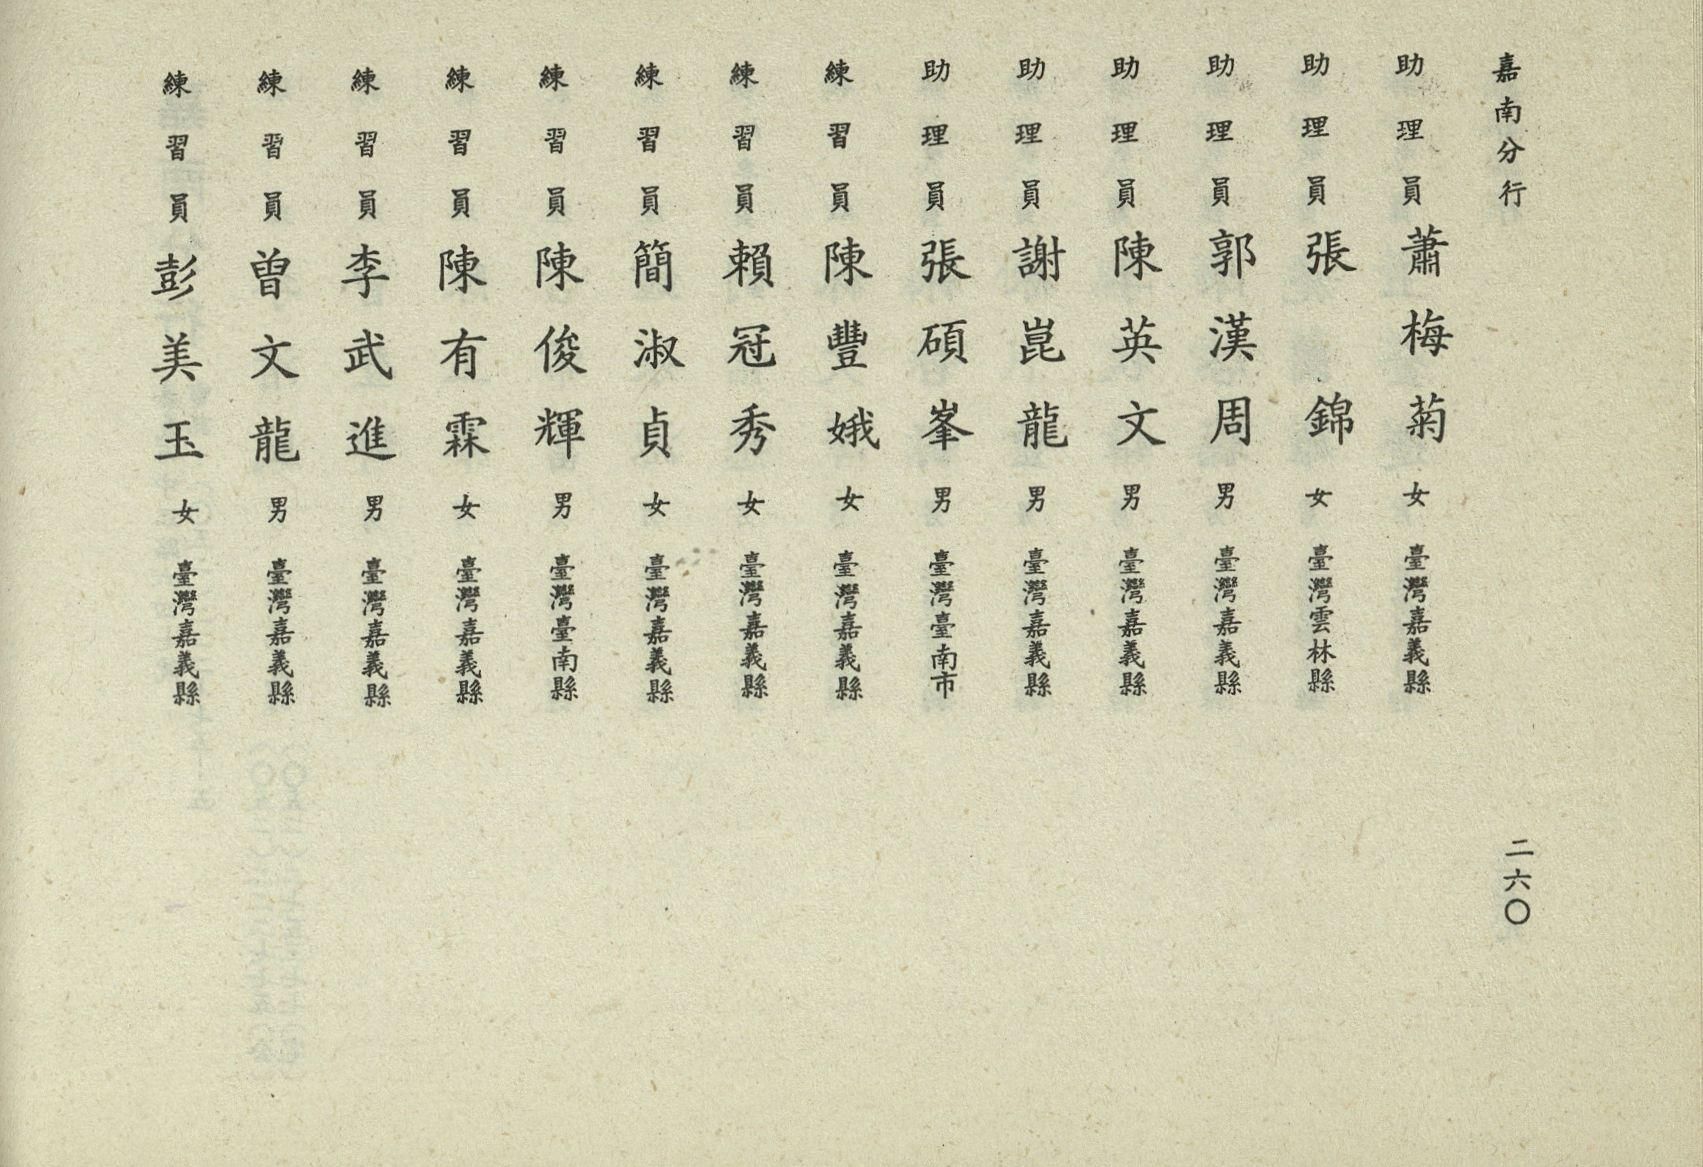 嘉南分行
二六〇
助理員蕭梅菊女臺灣嘉義縣
助理員張錦女臺灣雲林縣
助理員郭漢周男臺灣嘉義縣
助理員陳英文男臺灣嘉義縣
助理員謝崑龍男臺灣嘉義縣
助理員張碩峯男臺灣臺南市
練習員陳豐娥女臺灣嘉義縣
練習員賴冠秀女臺灣嘉義縣
練習員簡淑貞女臺灣嘉義縣
練習員陳俊輝男臺灣臺南縣
練習員陳有霖女臺灣嘉義縣
練習員李武進男臺灣嘉義縣
練習員曾文龍男臺灣嘉義縣
練習員彭美玉女臺灣嘉義縣